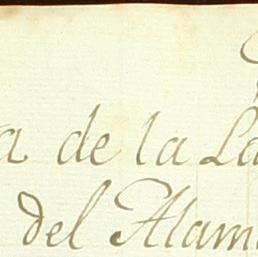 a de la La
del Alam